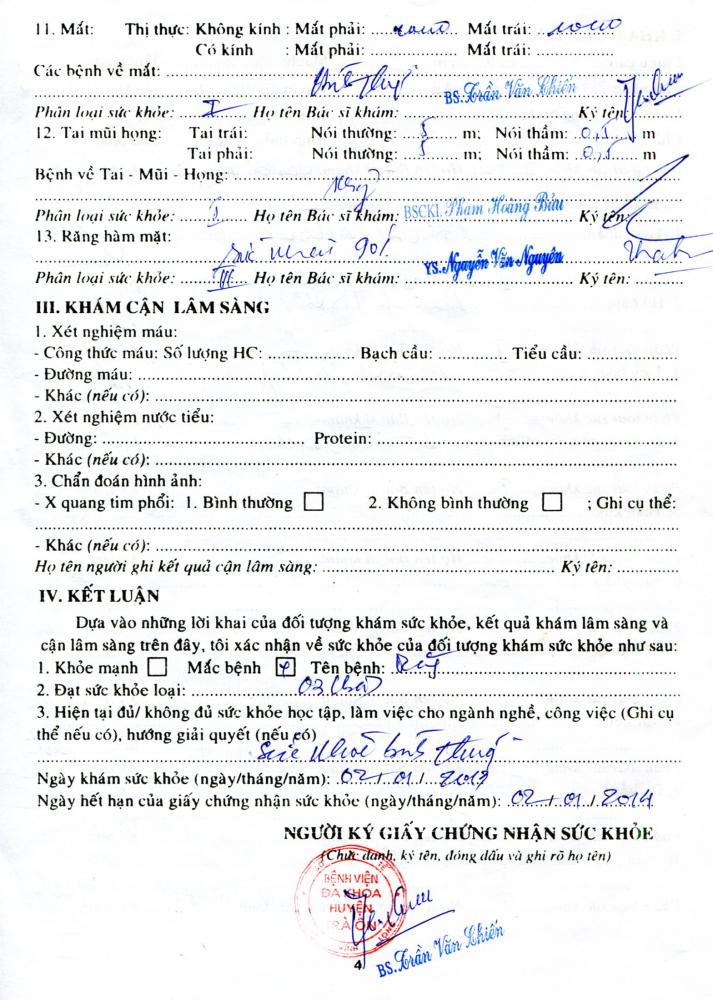 11. Mắt: Thị thực: Không kính : Mắt phải: .......... Mắt trái: ..........
Có kính : Mắt phải: .......... Mắt trái: ..........
Các bệnh về mắt: ..........
bình thường
BS. Trần Văn Chiến
Phân loại sức khỏe: I Họ tên Bác sĩ khám: .......... Ký tên: ..........
12. Tai mũi họng: Tai trái: Nói thường: 5 m; Nói thầm: 0,5 m
Tai phải: Nói thường: 5 m; Nói thầm: 0,5 m
Bệnh về Tai - Mũi - Họng: ..........
Phân loại sức khỏe: I Họ tên Bác sĩ khám: BSCKI. Phạm Hoàng Bửu Ký tên: ..........
13. Răng hàm mặt: ..........
sức nhai 90%
YS. Nguyễn Văn Nguyên
Phân loại sức khỏe: III Họ tên Bác sĩ khám: .......... Ký tên: ..........
III. KHÁM CẬN LÂM SÀNG
1. Xét nghiệm máu:
- Công thức máu: Số lượng HC: .......... Bạch cầu: .......... Tiểu cầu: ..........
- Đường máu: ..........
- Khác (nếu có): ..........
2. Xét nghiệm nước tiểu:
- Đường: .......... Protein: ..........
- Khác (nếu có): ..........
3. Chẩn đoán hình ảnh:
- X quang tim phổi: 1. Bình thường ☐ 2. Không bình thường ☐ ; Ghi cụ thể:
..........
- Khác (nếu có): ..........
Họ tên người ghi kết quả cận lâm sàng: .......... Ký tên: ..........
IV. KẾT LUẬN
Dựa vào những lời khai của đối tượng khám sức khỏe, kết quả khám lâm sàng và
cận lâm sàng trên đây, tôi xác nhận về sức khỏe của đối tượng khám sức khỏe như sau:
1. Khỏe mạnh ☐ Mắc bệnh ☑ Tên bệnh: Răng
2. Đạt sức khỏe loại: 03 (ba)
3. Hiện tại đủ/ không đủ sức khỏe học tập, làm việc cho ngành nghề, công việc (Ghi cụ
thể nếu có), hướng giải quyết (nếu có)
Sức khỏe bình thường
Ngày khám sức khỏe (ngày/tháng/năm): 02 / 01 / 2013
Ngày hết hạn của giấy chứng nhận sức khỏe (ngày/tháng/năm): 02 / 01 / 2014
NGƯỜI KÝ GIẤY CHỨNG NHẬN SỨC KHỎE
(Chức danh, ký tên, đóng dấu và ghi rõ họ tên)
BỆNH VIỆN
ĐA KHOA
HUYỆN
TRÀ ÔN
BS. Trần Văn Chiến
4